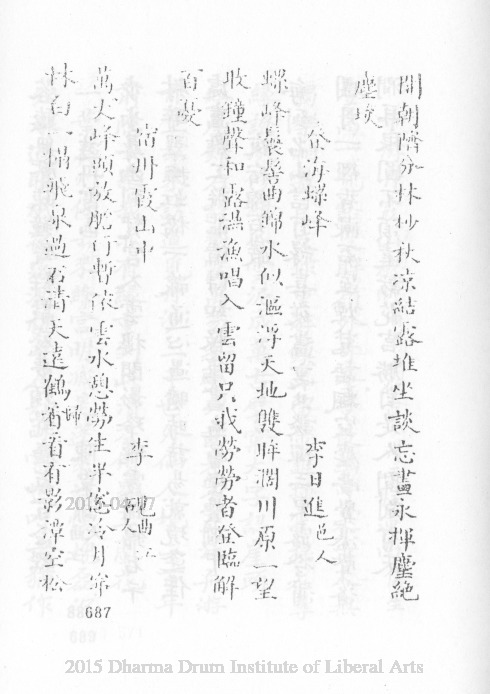 開朝隮分林杪秋涼結露堆坐談忘晝永揮麈絕
塵埃
登海螺峰 李日進邑人
螺峰鬟髻曲歸水似漚浮天地雙眸濶川原一望
收鐘聲和露濕漁唱入雲留只我勞勞者登臨解
百憂
宿丹霞山中 李 曲江人
萬丈峰頭放船行暫依雲水憩勞生半窓冷月寒
林白一榻飛泉過石清天遠鶴歸看有影潭空松
687
2015 Dharma Drum Institute of Liberal Arts